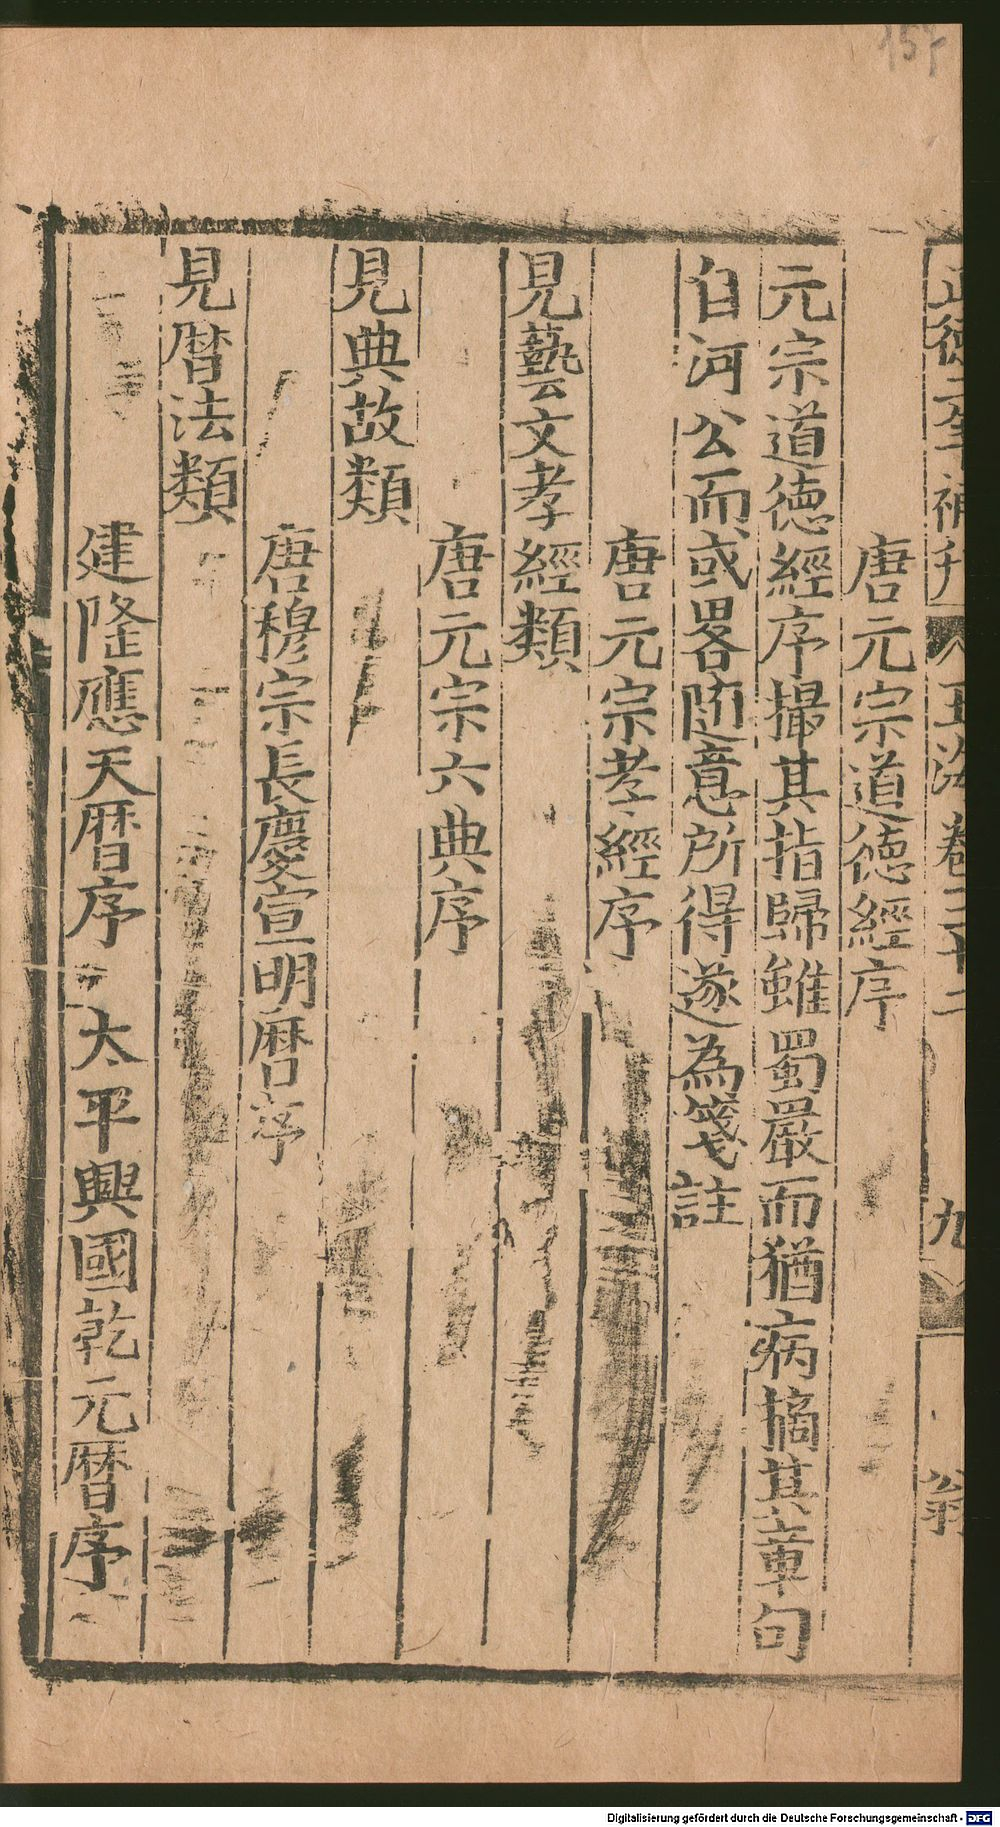 唐元宗道徳經序
元宗道徳經序撮其指歸雖蜀嚴而猶病摘其章句
自河公而或畧随意所得遂為箋註
唐元宗孝經序
見藝文孝經類
唐元宗六典序
見典故類
唐穆宗長慶宣明暦序
見暦法類
建隆應天暦序 太平興國乾元暦序
Digitalisierung gefördert durch die Deutsche Forschungsgemeinschaft - DFG